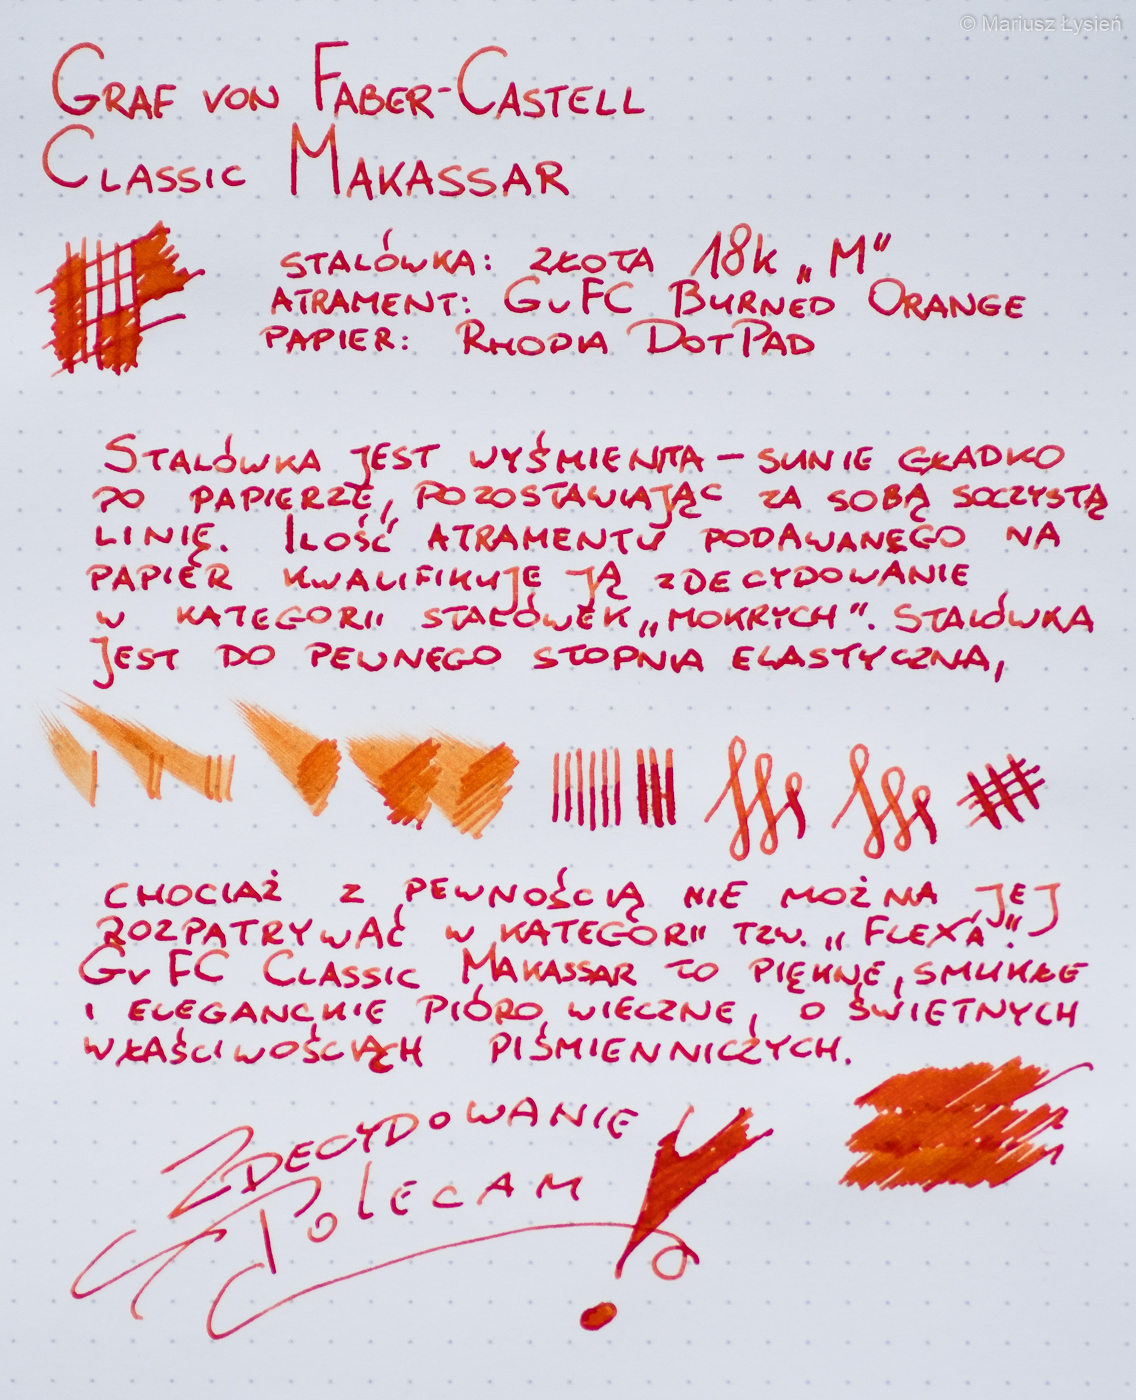 © Mariusz Łysień
GRAF VON FABER-CASTELL
CLASSIC MAKASSAR
STALÓWKA: ZŁOTA 18K „M”
ATRAMENT: GvFC BURNED ORANGE
PAPIER: RHODIA DOTPAD
STALÓWKA JEST WYŚMIENITA – SUNIE GŁADKO
PO PAPIERZE, POZOSTAWIAJĄC ZA SOBĄ SOCZYSTĄ
LINIĘ. ILOŚĆ ATRAMENTU PODAWANEGO NA
PAPIER KWALIFIKUJE JĄ ZDECYDOWANIE
W KATEGORII STALÓWEK „MOKRYCH”. STALÓWKA
JEST DO PEWNEGO STOPNIA ELASTYCZNA,
CHOCIAŻ Z PEWNOŚCIĄ NIE MOŻNA JEJ
ROZPATRYWAĆ W KATEGORII TZW. „FLEXA”.
GvFC CLASSIC MAKASSAR TO PIĘKNE, SMUKŁE
I ELEGANCKIE PIÓRO WIECZNE, O ŚWIETNYCH
WŁAŚCIWOŚCIACH PIŚMIENNICZYCH.
ZDECYDOWANIE
POLECAM !